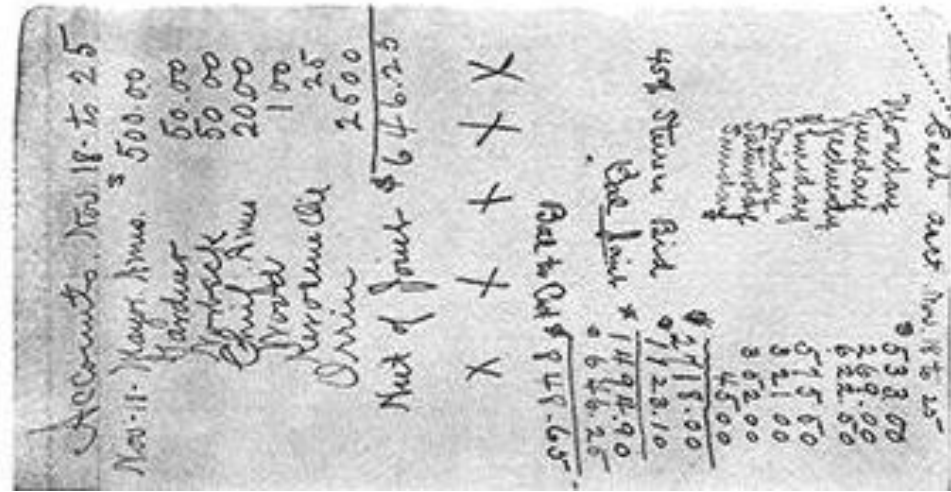 Accounts. Nov. 18. to 25
Nov. 18. Mayor Ames. $ 500.00
Gardner 50.00
Norbeck 50 00
Chief. Ames 20.00
1 00
Kerosene Oil 25
Orrin 25 00
Nut of Joint $ 646.25
X X X X X
Nov 18 to 25
Monday $ 533 00
Tuesday 269.00
Wednesday 622.50
Thursday 575 50
Friday 321 00
Saturday 352 00
Sunday 45 00
$ 2718.00
45% Steers Bid 1223.10
Bal Joint $ 1494.90
646.25
Bal to Cut $ 848.65